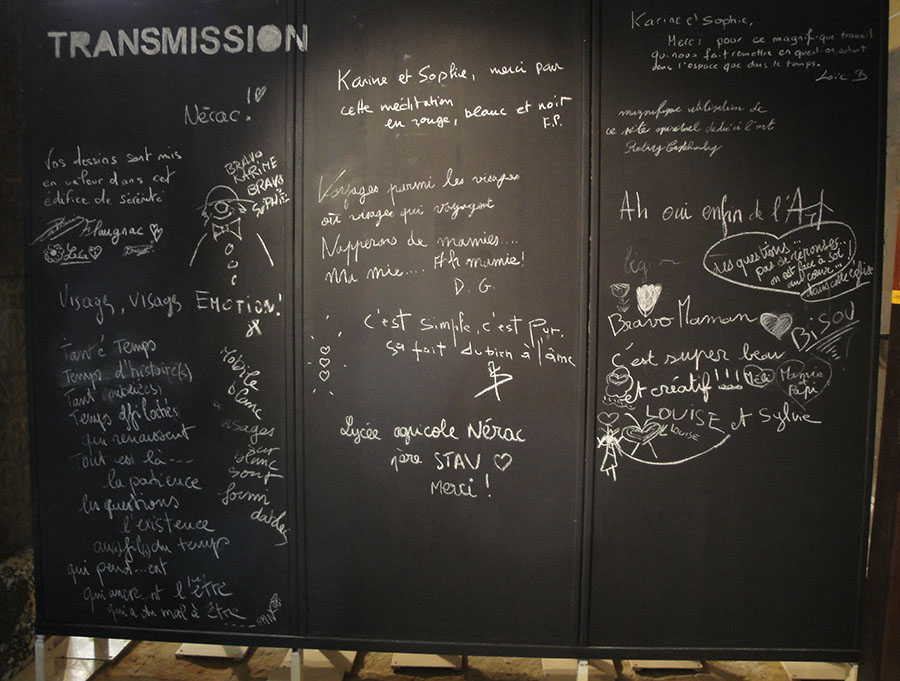 TRANSMISSION
Nérac!
Vos dessins sont mis
en valeur dans cet
édifice de sérénité
BRAVO
KARINE
BRAVO
SOPHIE
Visages, Visages
EMOTION!
Tant é Temps
Temps d'histoire(s)
Tant oubliées
Temps affilactés
qui renaissent
Tout est là ---
la patience
les questions
l'existence
au(x) fil(s) du temps
qui pend...ent
qui ancre..nt l'être
qui a du mal à être
Mobile
blanc
visages
sur
blanc
sont
formi
dables
Karine et Sophie, merci pour
cette méditation
en rouge, blanc et noir
F.P.
Voyages parmi les visages
où visages qui voyagent
Napperons de mamies....
Ma mie.... Ah mamie!
D. G.
C'est simple, c'est pur,
ça fait du bien à l'âme
Lycée agricole Nérac
1ère STAV
Merci !
Karine et Sophie,
Merci pour ce magnifique travail
qui nous fait remettre en question autant
dans l'espace que dans le temps.
Loïc B
magnifique utilisation de
ce site spirituel dédié à l'art
Ah oui enfin de l'Art
des questions...
pas de réponses...
on est face à soi
au coeur...
dans cette église
Bravo Maman
BISOU
C'est super beau
et créatif !!!!
Méli
Mamie
et
Papi
LOUISE et Sylvie
LOUISE